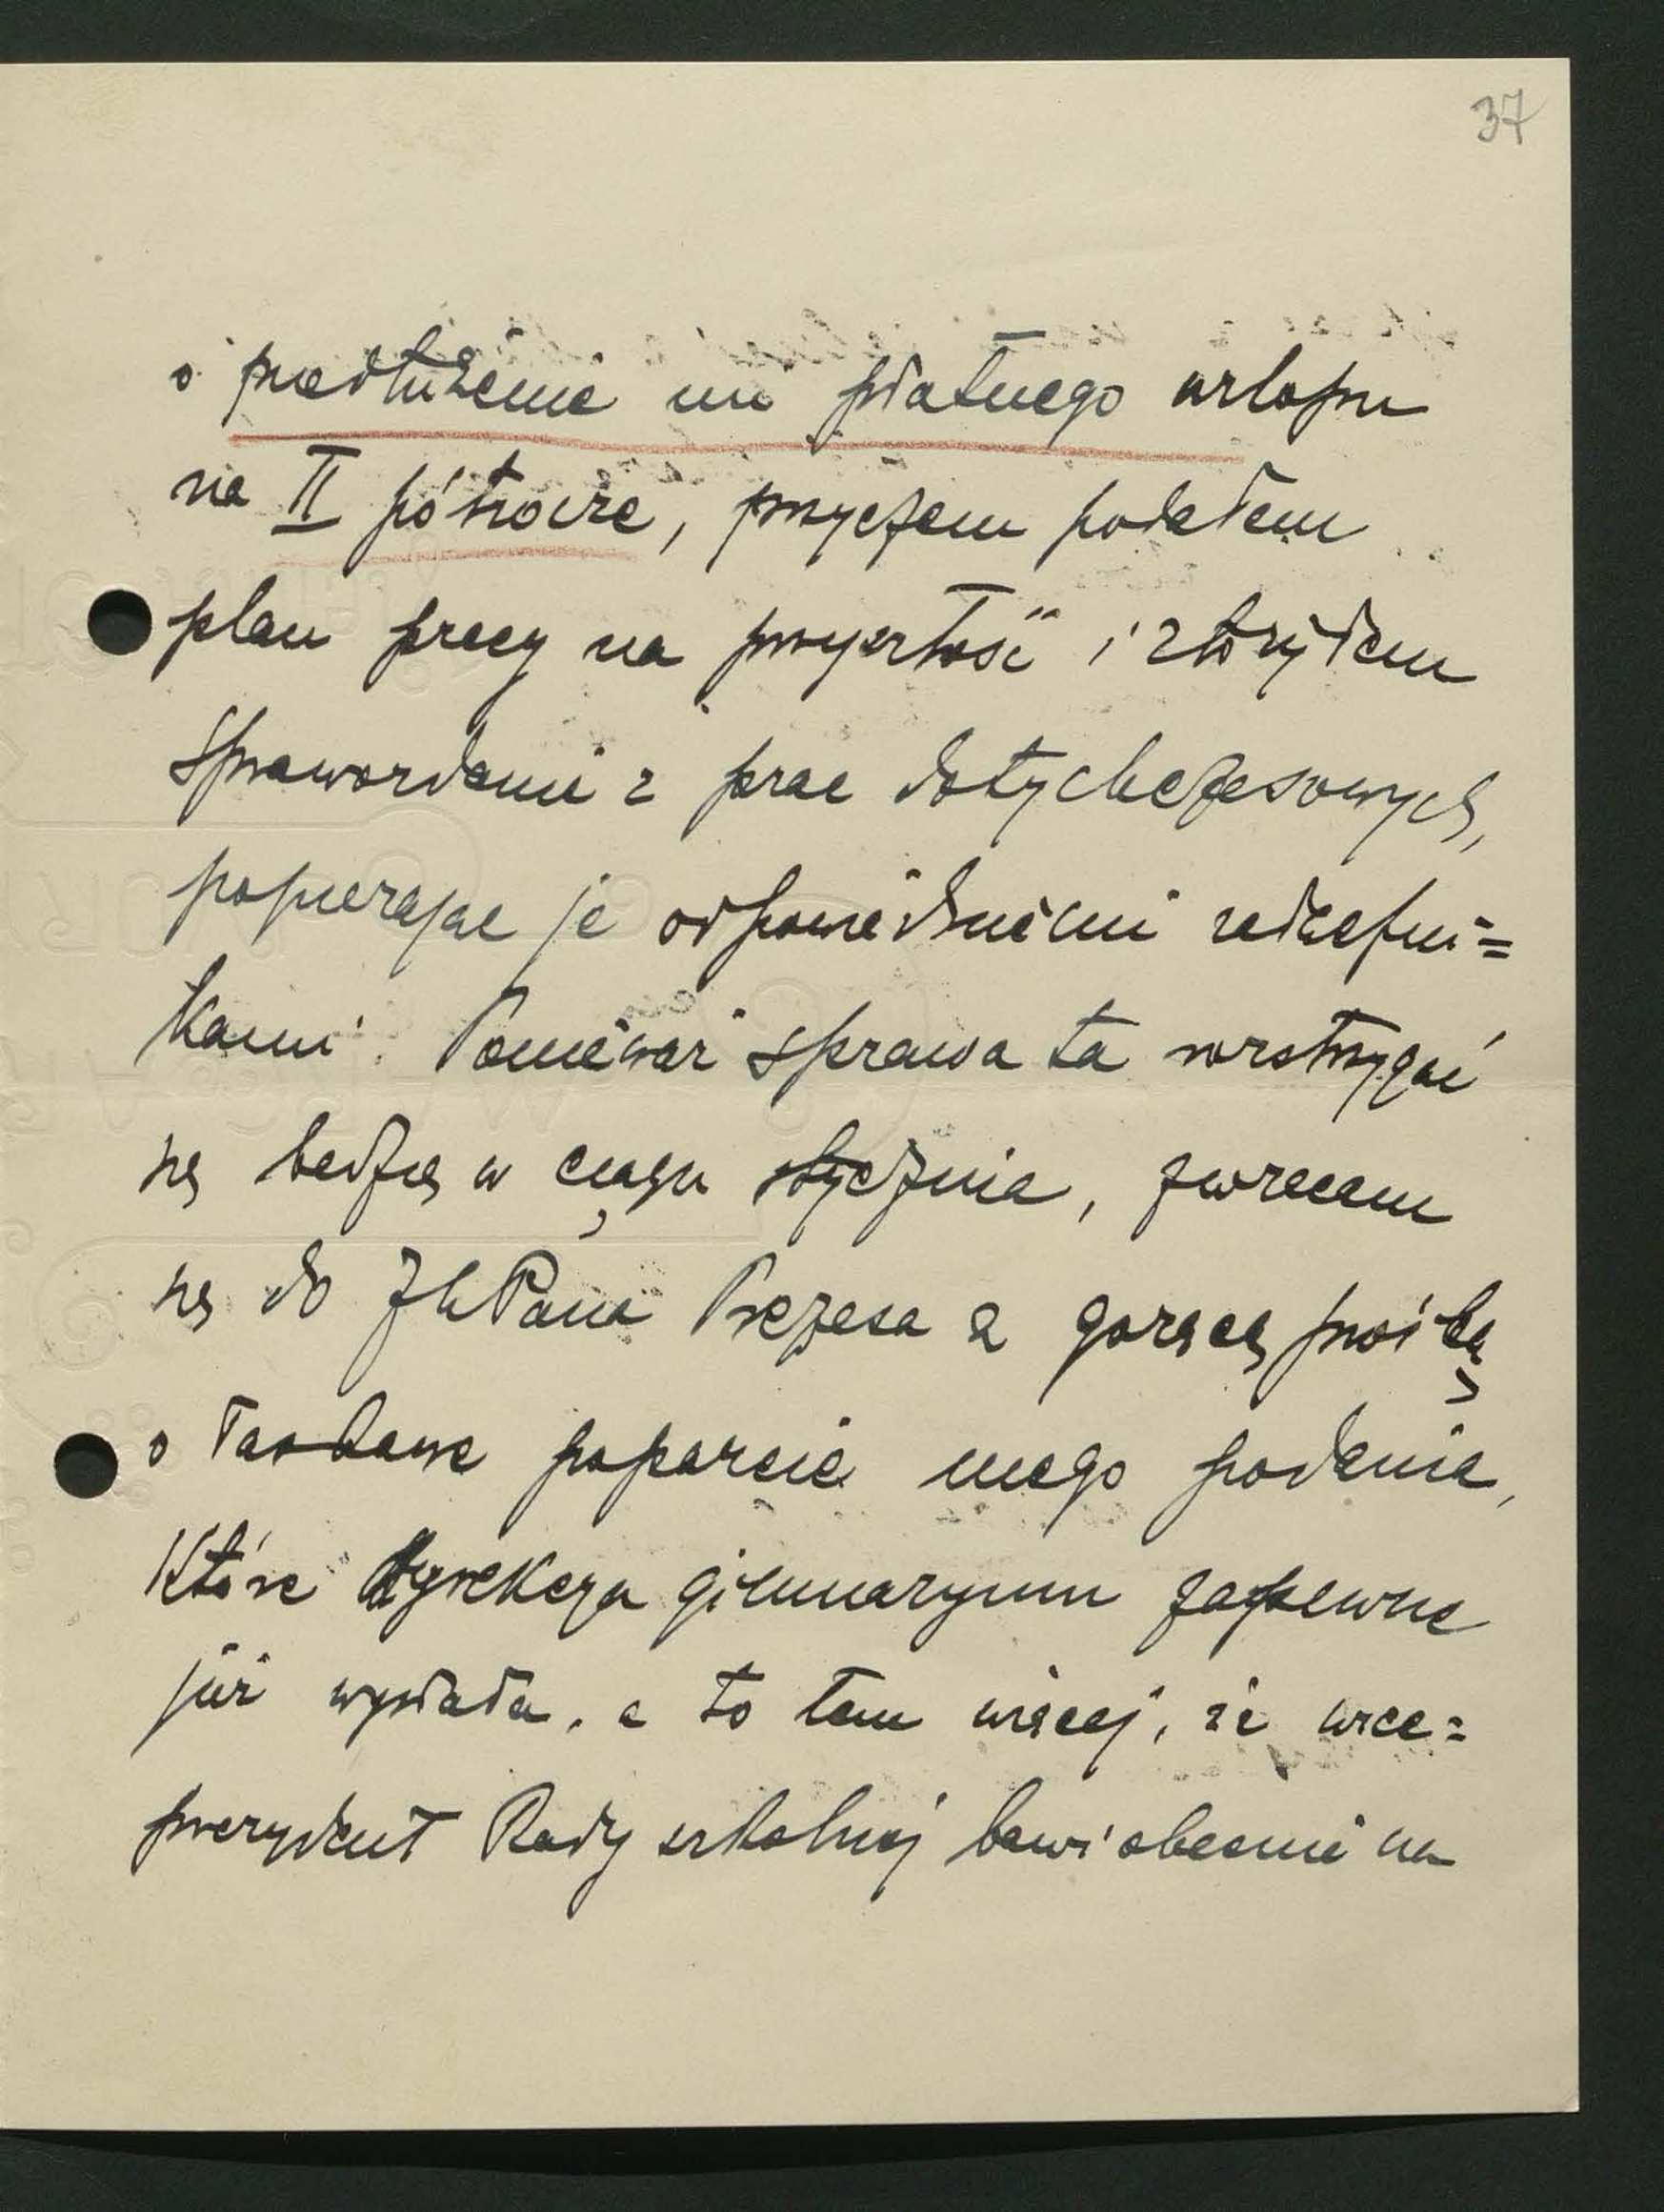 37
o przedłużenie mi płatnego urlopu
na II półrocze, przyczem podałem
plan pracy na przyszłość i złożyłem
sprawozdanie z prac dotychczasowych,
popierając je odpowiedniemi załączni=
kami. Ponieważ sprawa ta rozstrzygać
się będzie w ciągu stycznia, zwracam
się do JWPana Prezesa z gorącą prośbą
o łaskawe poparcie mego podania,
które dyrekcya gimnazyum zapewne
już wysłała, a to tem więcej, że wice=
prezydent Rady szkolnej bawi obecnie na